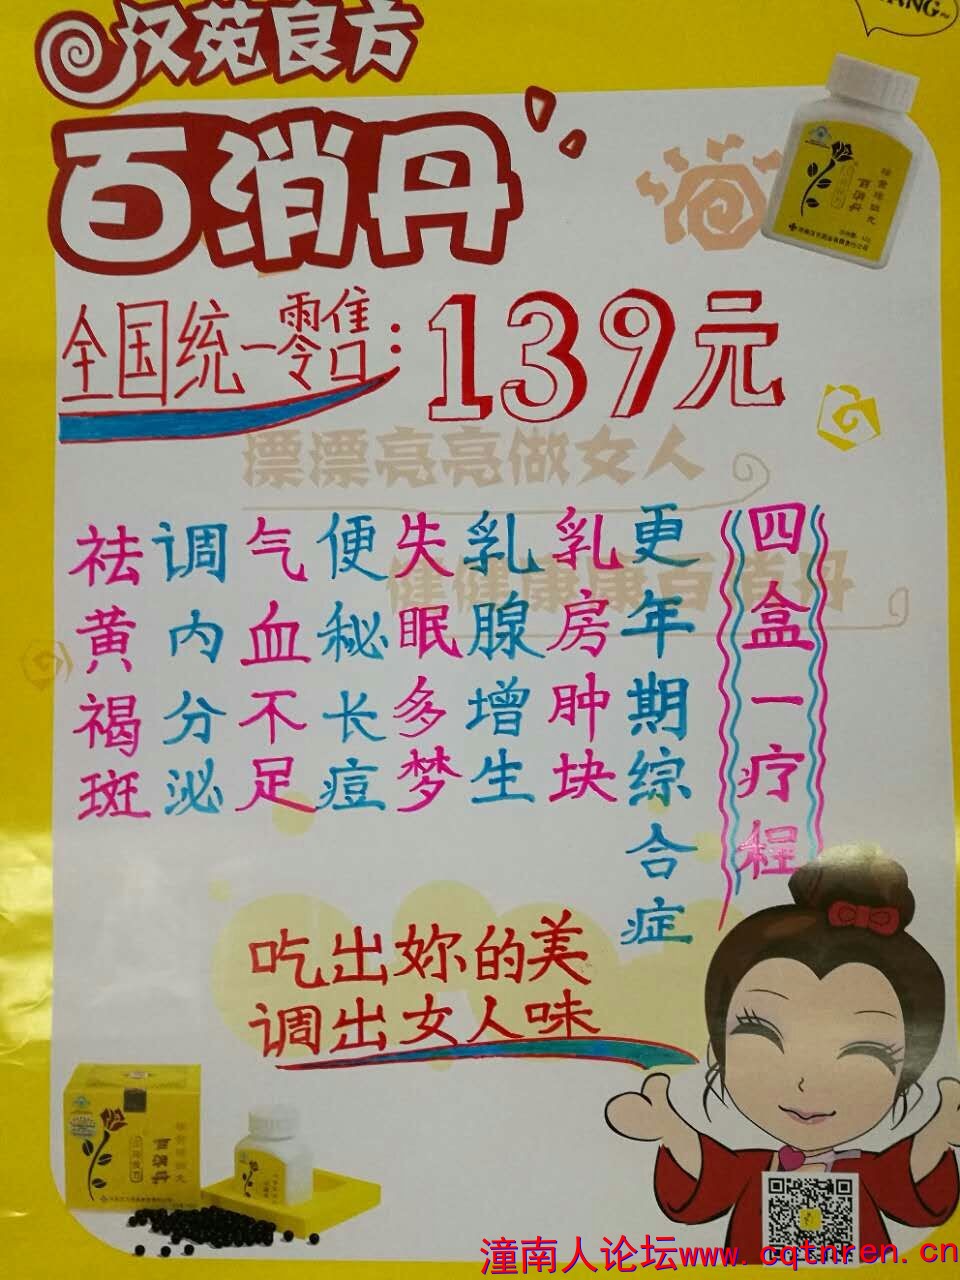 ANG~
汉苑良方
百消丹
全国统一零售:139元
漂漂亮亮做女人
健健康康百消丹
祛黄褐斑
调内分泌
气血不足
便秘长痘
失眠多梦
乳腺增生
乳房肿块
更年期综合症
四盒一疗程
吃出妳的美
调出女人味
百消丹
百消丹
潼南人论坛www.cqtnren.cn